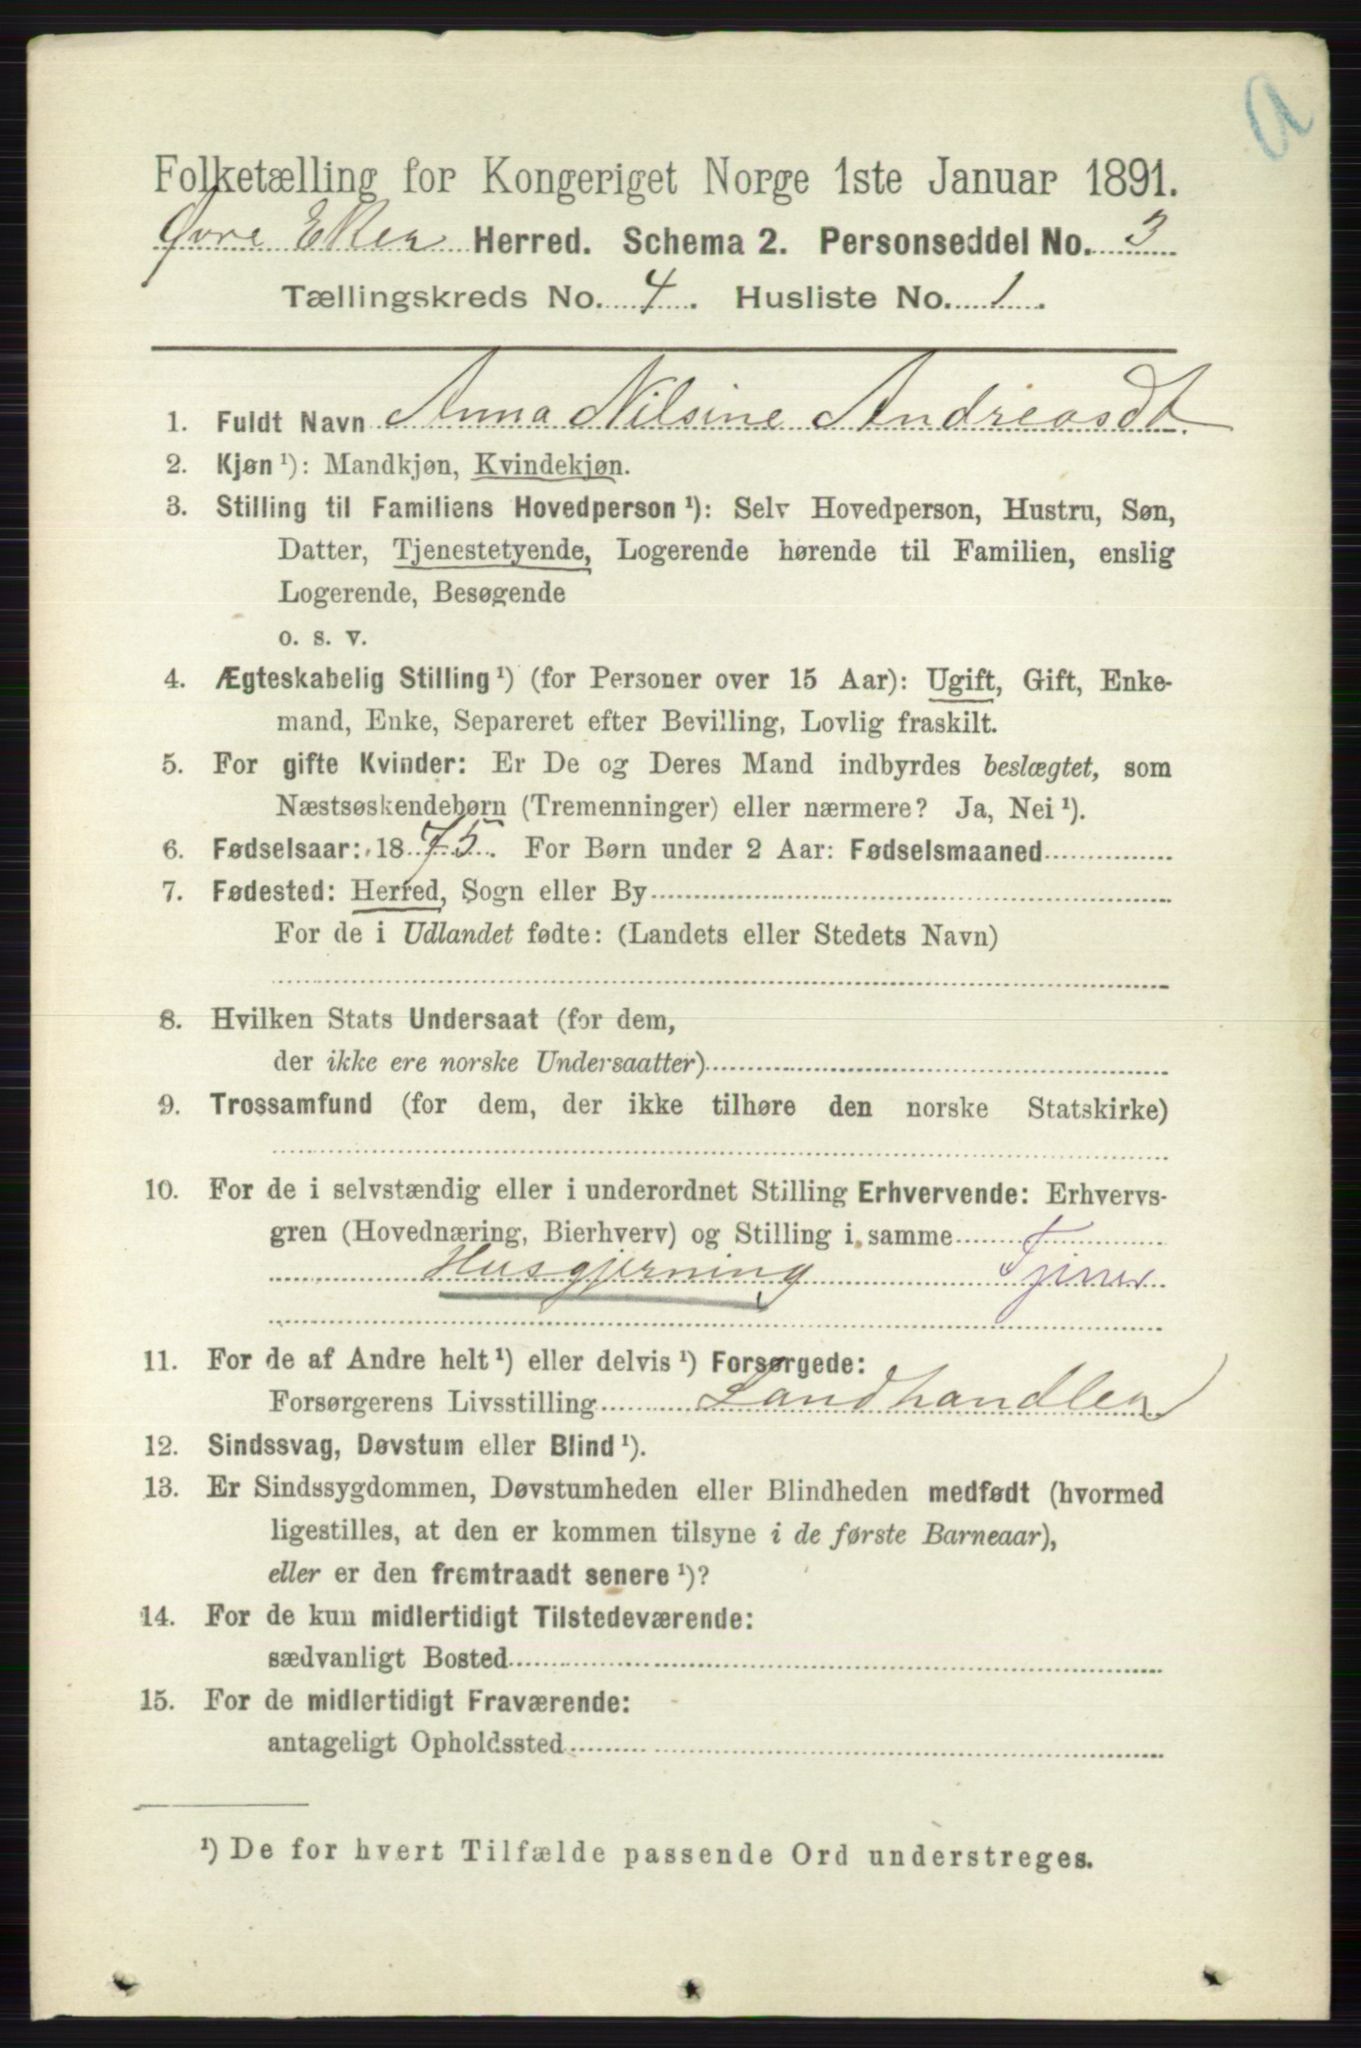 a
Folketælling for Kongeriget Norge 1ste Januar 1891.
Øvre Eker Herred. Schema 2. Personseddel No. 3
Tællingskreds No. 4. Husliste No. 1.
1. Fuldt Navn Anna Nilsine Andreasdt.
2. Kjøn ¹): Mandkjøn, Kvindekjøn.
3. Stilling til Familiens Hovedperson ¹): Selv Hovedperson, Hustru, Søn,
Datter, Tjenestetyende, Logerende hørende til Familien, enslig
Logerende, Besøgende
o. s. v.
4. Ægteskabelig Stilling ¹) (for Personer over 15 Aar): Ugift, Gift, Enke-
mand, Enke, Separeret efter Bevilling, Lovlig fraskilt.
5. For gifte Kvinder: Er De og Deres Mand indbyrdes beslægtet, som
Næstsøskendebørn (Tremenninger) eller nærmere? Ja, Nei ¹).
6. Fødselsaar: 1875. For Børn under 2 Aar: Fødselsmaaned
7. Fødested: Herred, Sogn eller By
For de i Udlandet fødte: (Landets eller Stedets Navn)
8. Hvilken Stats Undersaat (for dem,
der ikke ere norske Undersaatter)
9. Trossamfund (for dem, der ikke tilhøre den norske Statskirke)
10. For de i selvstændig eller i underordnet Stilling Erhvervende: Erhvervs-
gren (Hovednæring, Bierhverv) og Stilling i samme
Husgjerning Tjener
11. For de af Andre helt ¹) eller delvis ¹) Forsørgede:
Forsørgerens Livsstilling Landhandler
12. Sindssvag, Døvstum eller Blind ¹).
13. Er Sindssygdommen, Døvstumheden eller Blindheden medfødt (hvormed
ligestilles, at den er kommen tilsyne i de første Barneaar),
eller er den fremtraadt senere ¹)?
14. For de kun midlertidigt Tilstedeværende:
sædvanligt Bosted
15. For de midlertidigt Fraværende:
antageligt Opholdssted
¹) De for hvert Tilfælde passende Ord understreges.